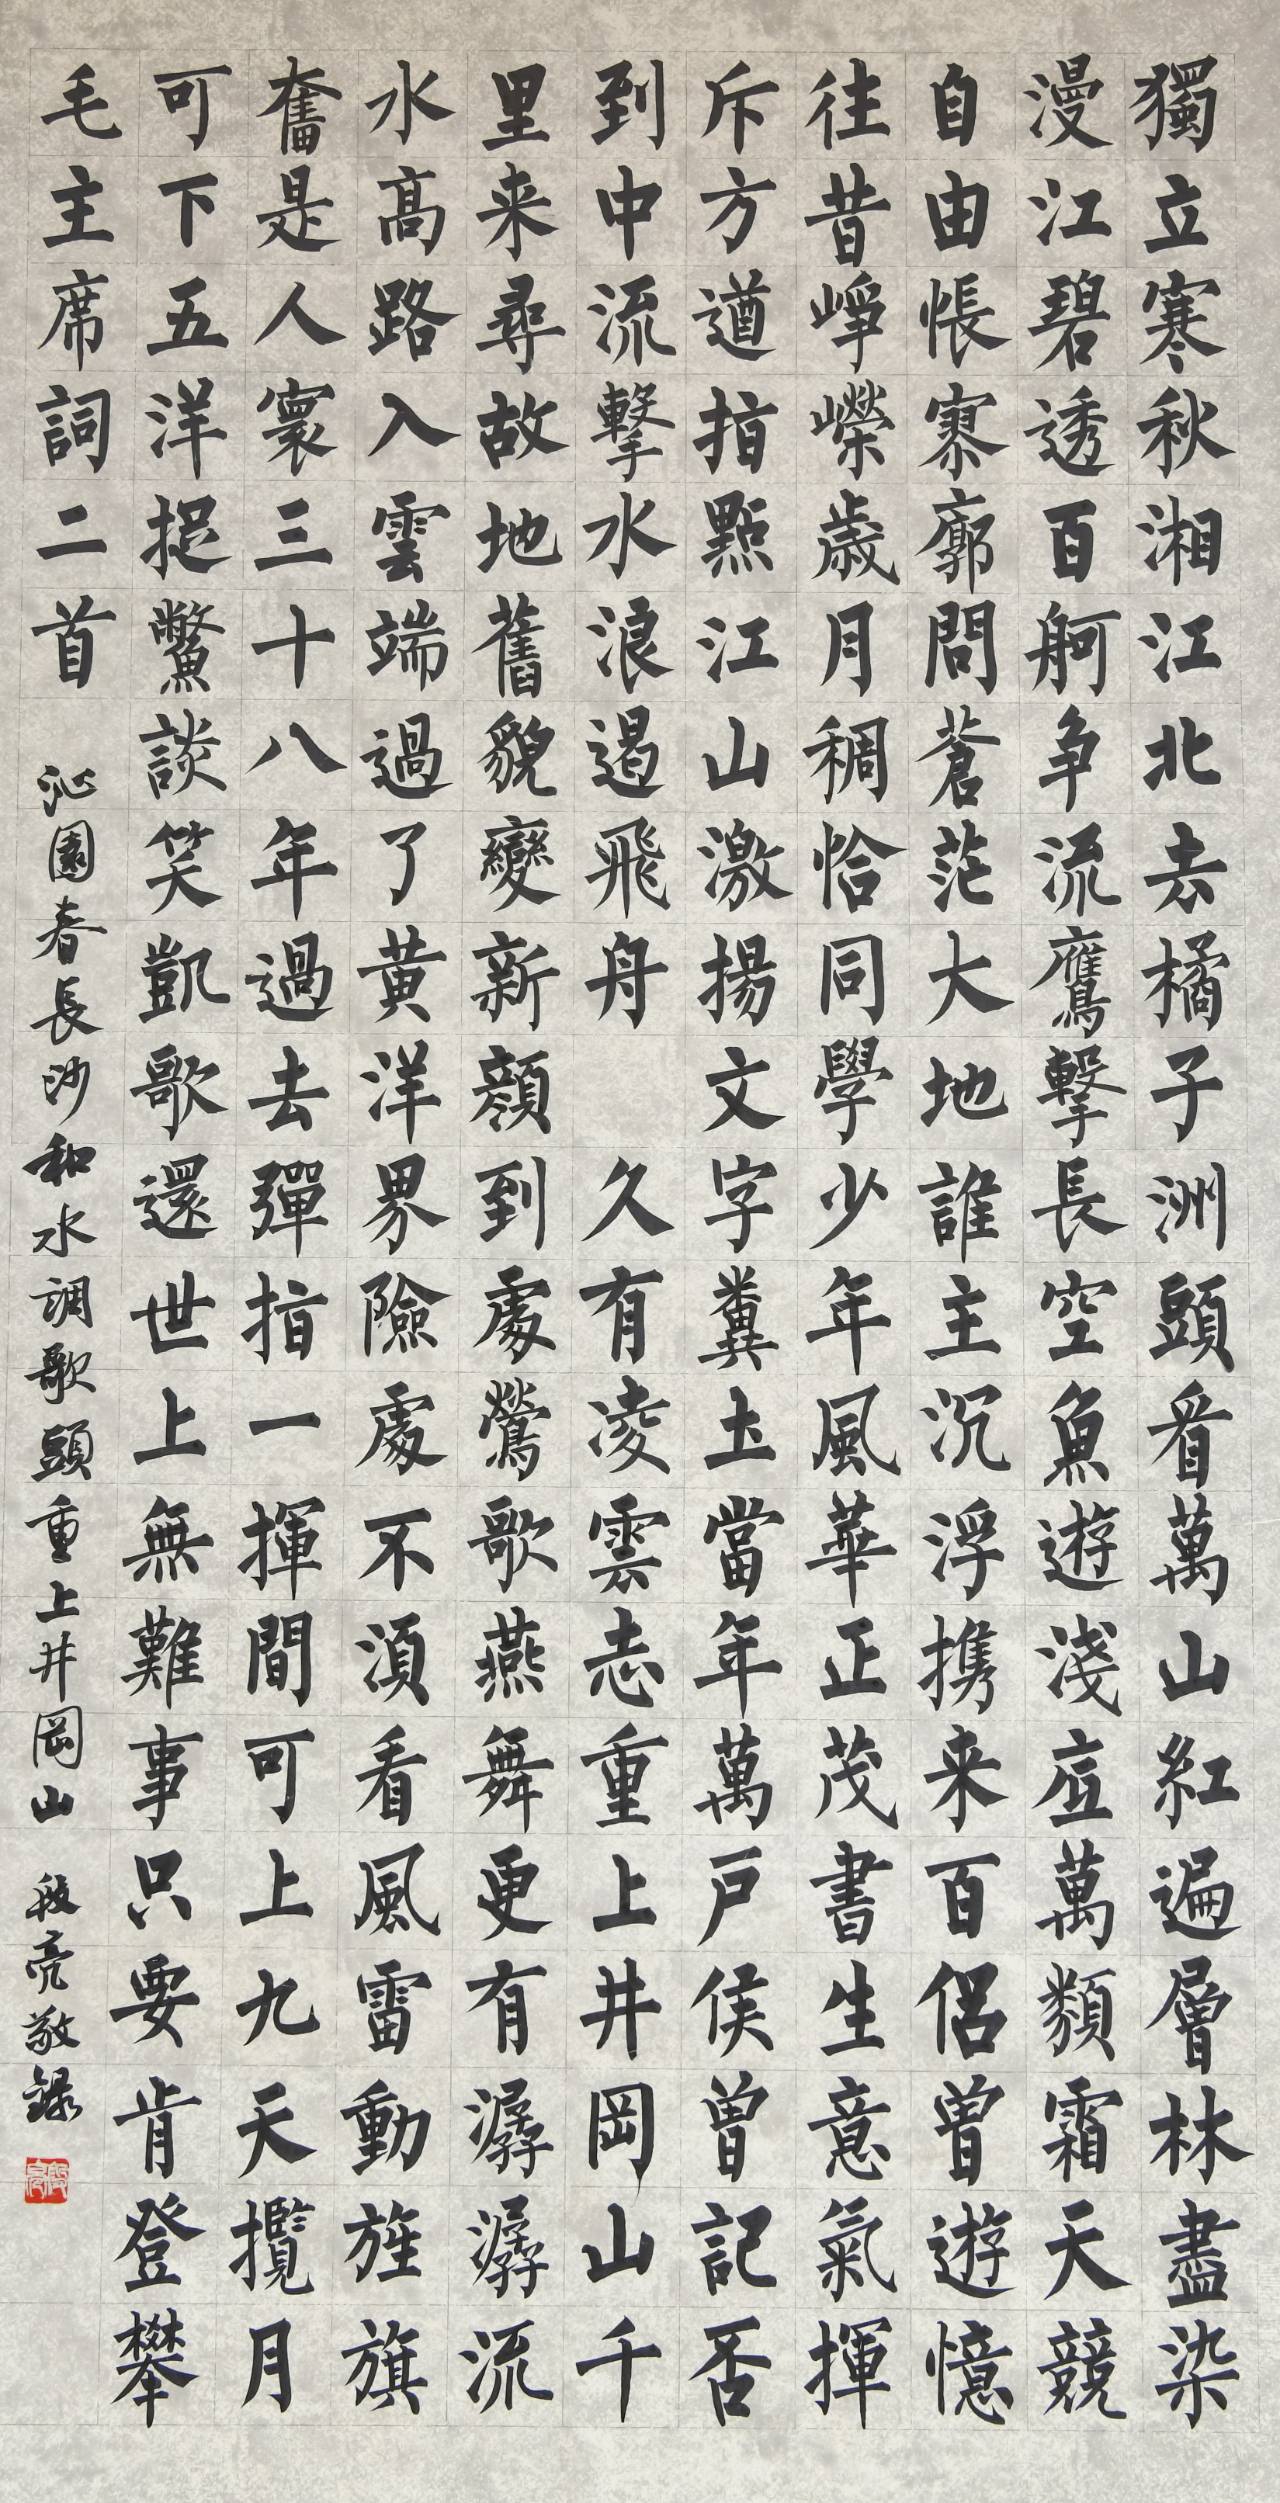 獨立寒秋湘江北去橘子洲頭看萬山紅遍層林盡染
漫江碧透百舸争流鷹擊長空魚遊淺底萬類霜天競
自由悵寥廓問蒼茫大地誰主沉浮攜来百侣曾遊憶
往昔崢嶸歲月稠恰同學少年風華正茂書生意氣揮
斥方遒指點江山激揚文字糞土當年萬户侯曾記否
到中流擊水浪遏飛舟 久有凌雲志重上井岡山千
里来尋故地舊貌變新顏到處鶯歌燕舞更有潺潺流
水高路入雲端過了黃洋界險處不須看風雷動旌旗
奮是人寰三十八年過去彈指一揮間可上九天攬月
可下五洋捉鱉談笑凱歌還世上無難事只要肯登攀
毛主席詞二首 沁園春長沙和水調歌頭重上井岡山 段亮敬録